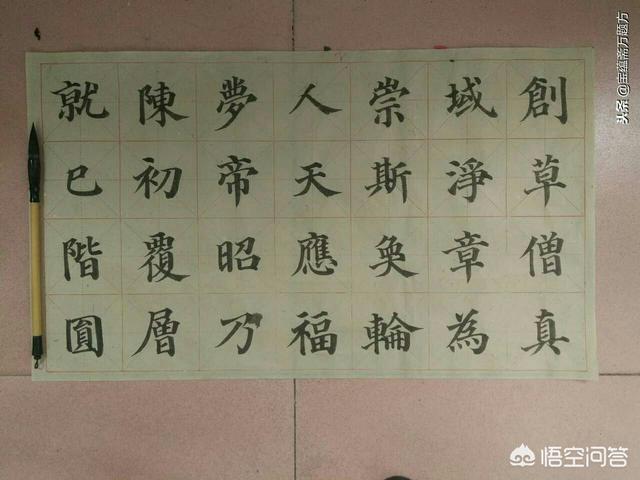 創草僧真
域淨章為
崇斯奐輪
人天應福
夢帝昭乃
陳初覆層
就已階圓
头条@宝蕴斋方题方
悟空问答